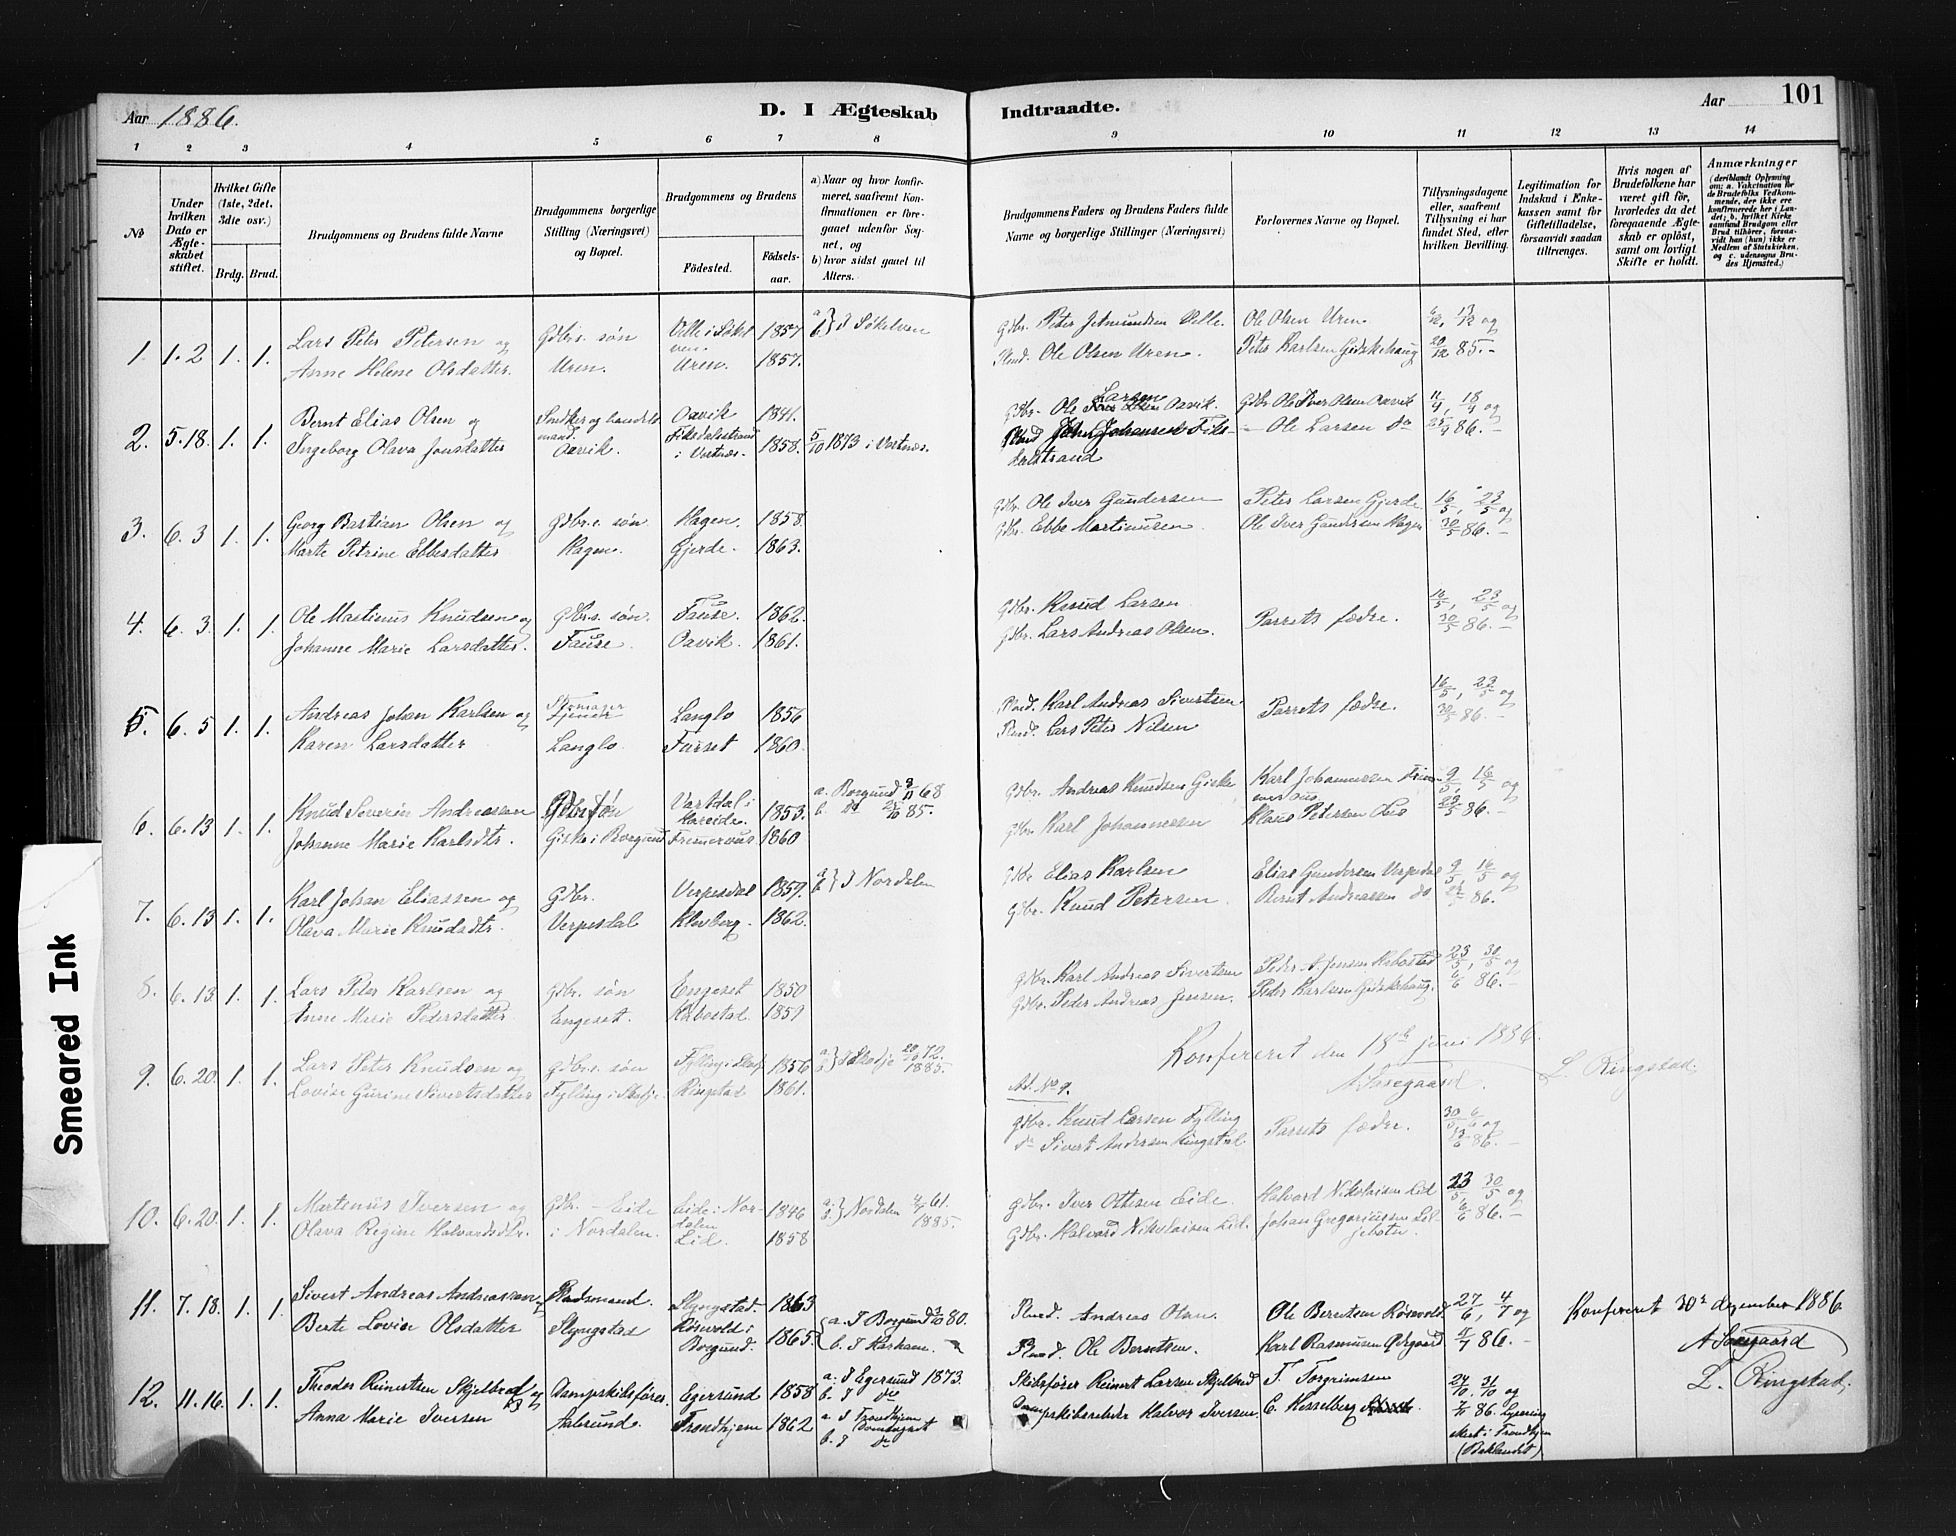 Aar 1886.
D. I Ægteskab Indtraadte.
Aar
101
1 2 3 4 5 6 7 8 9 10 11 12 13 14
№
Under hvilken Dato er Ægteskabet stiftet.
Hvilket Gifte (1ste, 2det, 3die osv.)
Brdg. Brud.
Brudgommens og Brudens fulde Navne
Brudgommens borgerlige Stilling (Næringsvei) og Bopæl.
Brudgommens og Brudens
Fødested.
Fødselsaar.
a) Naar og hvor konfirmeret, saafremt Konfirmationen er foregaaet udenfor Sognet, og
b) hvor sidst gaaet til Alters.
Brudgommens Faders og Brudens Faders fulde Navne og borgerlige Stillinger (Næringsvei)
Forlovernes Navne og Bopæl.
Tillysningsdagene eller, saafremt Tillysning ei har fundet Sted, efter hvilken Bevilling.
Legitimation for Indskud i Enkekassen samt for Giftetilladelse, forsaavidt saadan tiltrænges.
Hvis nogen af Brudefolkene har været gift før, hvorledes da det foregaaende Ægteskab er opløst, samt om lovligt Skifte er holdt.
Anmærkninger
(deriblandt Oplysning om: a. Vakcination for de Brudefolks Vedkommende, der ikke ere konfirmerede her i Landet; b. hvilket Kirkesamfund Brudgom eller Brud tilhører, forsaavidt han (hun) ikke er Medlem af Statskirken, og c. udensogns Brudes Hjemsted.)
1. 1. 2 1. 1. Lars Peter Petersen og Gdbrs. søn Velle i Søkelven 1857 a b } I Søkelven Gdbr. Peter Jetmundsen Velle. Ole Olsen Uren 6/12, 13/12 og
Anne Helene Olsdatter. Uren. Uren. 1857. Plmd. Ole Olsen Uren. Peter Karlsen Gidskehaug 20/12 85.
2. 5. 18. 1. 1. Bernt Elias Olsen og Snedker og handelsmand. Aavik 1841. Gdbr. Ole Larsen Aavik. Gdbr Ole Iver Olsen Aavik 11/4, 18/4 og
Ingeborg Olava Jonsdatter Aavik. Fiksdalsstrand i Vestnes. 1858. 5/10 1873 i Vestnes. Plmd John Johansen Fiksdalstrand Ole Larsen do 25/4 86.
3. 6. 3 1. 1. Georg Bastian Olsen og Gdbrs. søn Hagen. 1858. Gdbr. Ole Iver Gundersen Peter Larsen Gjerde 16/5, 23/5 og
Marte Petrine Ebbesdatter Hagen. Gjerde. 1863. Gdbr. Ebbe Martinusen. Ole Iver Gundersen Hagen 30/5 86.
4. 6. 3. 1. 1. Ole Martinus Knudsen og Gdbrs. søn. Fause. 1862. Gdbr. Knud Larsen Parrets fædre. 16/5, 23/5 og
Johanne Marie Larsdatter. Fause. Aavik. 1861. Gdbr. Lars Andreas Olsen. 30/5 86.
5. 6. 5 1. 1. Andreas Johan Karlsen og Langlo 1856 Plmd. Karl Andreas Sivertsen. Parrets fædre. 16/5, 23/5 og
Karen Larsdatter Langlo. Furset 1860. Plmd. Lars Peter Nilsen 30/5 86.
6. 6. 13 1. 1. Knud Severin Andreassen Gdbrs søn Vartdal i Hareide. 1853. a. Borgund 68 Gdbr. Andreas Knudsen Giske Karl Johannessen 9/5, 16/5 og
Johanne Marie Karlsdtr. Giske i Borgund Fremervus 1860 b. do 85. Gdbr. Karl Johannesen Klaus Petersen 23/5 86.
7. 6. 13 1. 1. Karl Johan Eliassen og Gdbr. Verpesdal 1859. a b } I Nordalen Gdbr Elias Karlsen Elias Gundersen Verpesdal 9/5, 16/5 og
Olava Marie Knudsdtr. Verpesdal Klevberg. 1862. Gdbr. Knud Petersen Bernt Andreassen do 23/5 86.
8. 6. 13. 1. 1. Lars Peter Karlsen og Gdbr. søn Engeset 1850 Gdbr. Karl Andreas Sivertsen Peder A. Jensen Habostad 23/5, 30/5 og
Anne Marie Pedersdatter. Engeset. Habostad. 1859 Gdbr. Peder Andreas Jensen. Peder Karlsen Gidskehaug. 6/6 86.
Konfereret den 18de juni 1886.
A. Saxegaard. L. Ringstad.
9. 6. 20. 1. 1. Lars Peter Knudsen og Gdbrs. søn Fylling i Skodje 1856 a b } I Skodje 72. 1885.
Lovise Gurine Sivertsdatter Fylling i Skodje. Ringstad 1861.
Ad. No 9.
Gdbr. Knud Larsen Fylling Parrets fædre. 30/5 6/6 og
do Sivert Andersen Ringstad 13/6 86.
10. 6. 20. 1. 1. Martinus Iversen og Gdbr. Eide Eide i Nordalen 1846 a b } Nordalen 61. 1885. Gdbr. Iver Ottesen Eide. Halvard Nikolaisen Lid 23/5, 30/5 og
Olava Regine Halvardsdtr. i Nordalen. Lid. 1858 Gdbr. Halvard Nikolaisen Lid. Johan Gregoriussen 6/6 86.
11. 7. 18. 1. 1. Sivert Andreas Andreassen og Pladsmand. Slyngstad 1863 Plmd. Andreas Olsen. Ole Berntsen Røsvold 27/6, 4/7 og Konfereret 30te dezember 1886
Berte Lovise Olsdatter Slyngstad Røsvold i Borgund. 1865 a. I Borgund 80. b. I Harham. Plmd. Ole Berntsen. Karl Rasmusen 11/7 86. A Saxegaard
L. Ringstad.
12. 11. 16. 1. 1. Theodor Reinertsen Skjelbred og Dampskibsfører. Egersund 1858 a. I Egersund 1873. b. I do Skibsfører Reinert Larsen Skjelbred T. Torgrimsen 24/10, 31/10 og
Anna Marie Iversen Aalesund. Trondhjem 1862 a. I Trondhjem Domsognet b. I do Halvor Iversen. C. Hesselberg 7/11 86. Lysning sket i Trondhjem (Baklandet)
Smeared Ink